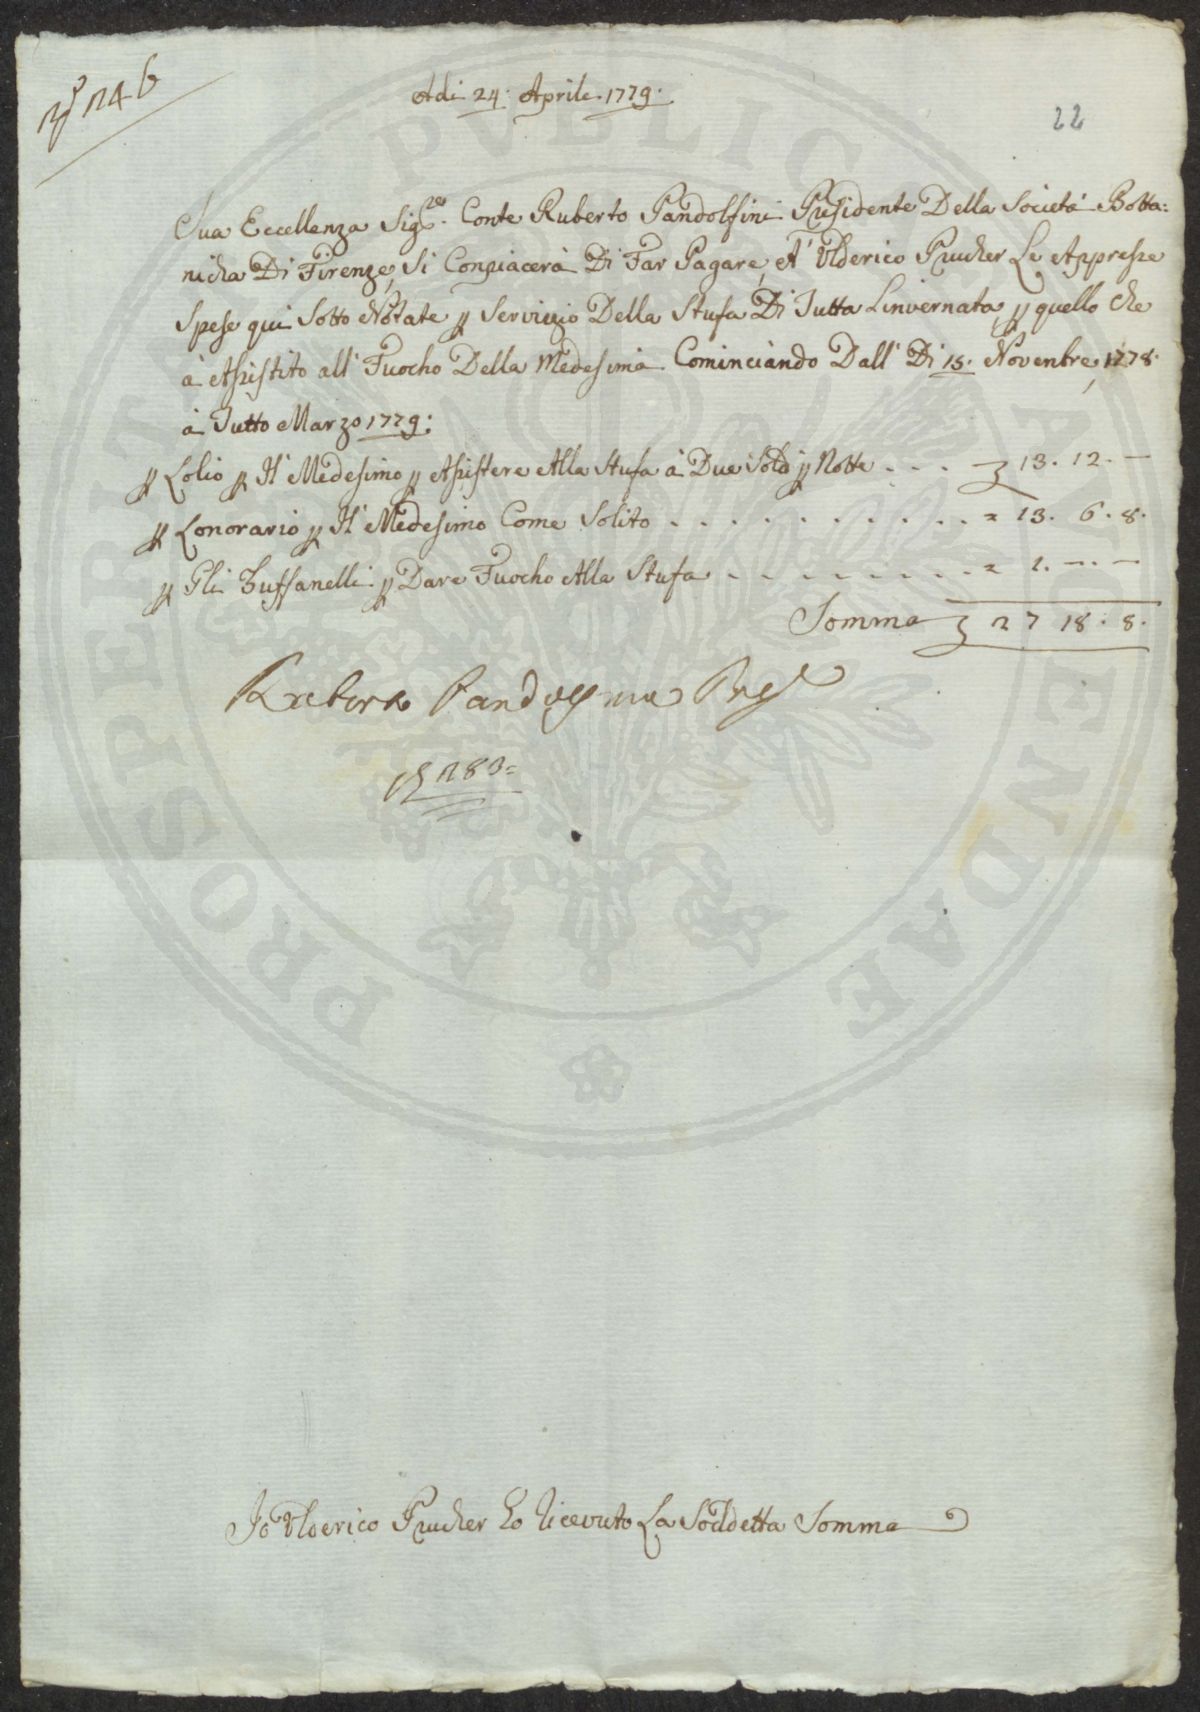 Adi 24: Aprile 1779:
22
Sua Eccellenza Sig.re Conte Ruberto Pandolfini Presidente Della Società Botta:
nicha Di Firenze, Si Conpiacerà Di Far Pagare, A' Ulderico Prucher Le Appresse
Spese qui Sotto Notate p Servizio Della Stufa Di Tutta Linvernata, p quello che
à Assistito all' Fuocho Della Medesima Cominciando Dall' Di 15: Novenbre, 1778.
à Tutto Marzo 1779:
p Lolio p Il Medesimo p Assistere Alla Stufa à Due Soldi p Notte . . . 13. 12. —
p Lonorario p Il Medesimo Come Solito . . . . . . . . . . = 13. 6. 8.
p Gli Zuffanelli p Dare Fuocho Alla Stufa . . . . . . . . . = 1. —. —
Somma 27 18. 8.
Ruberto Pandolfini Pres
283=
Io Ulderico Prucher ho ricevuto La Soddetta Somma
PROSPERITATI PVBLICAE AVGENDAE